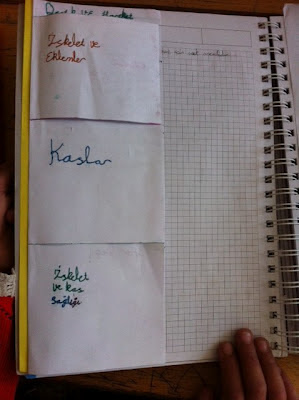 İskelet ve
Eklemler
Kaslar
İskelet
ve kas
Sağlığı